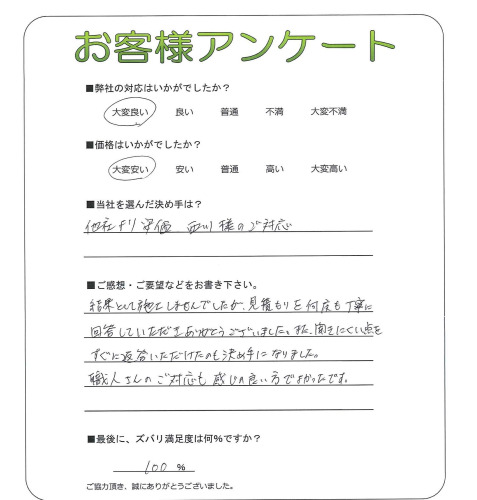 お客様アンケート
■弊社の対応はいかがでしたか?
大変良い 良い 普通 不満 大変不満
■価格はいかがでしたか?
大変安い 安い 普通 高い 大変高い
■当社を選んだ決め手は?
他社より 評価 西川様のご対応
■ご感想・ご要望などをお書き下さい。
結果として施工しませんでしたが、見積もりを何度も丁寧に
回答していただきありがとうございました。また、聞きにくい点を
すぐに返答いただけたのも決め手になりました。
職人さんのご対応も感じの良い方でよかったです。
■最後に、ズバリ満足度は何%ですか?
100 %
ご協力頂き、誠にありがとうございました。